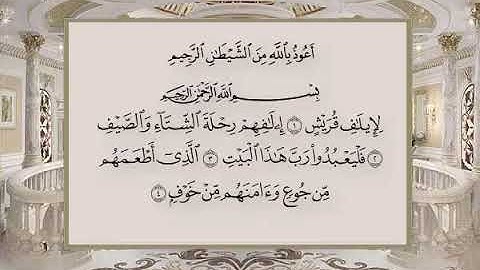 أَعُوذُ بِٱللَّهِ مِنَ ٱلشَّيْطَٰنِ ٱلرَّجِيمِ
بِسْمِ ٱللَّهِ ٱلرَّحْمَٰنِ ٱلرَّحِيمِ
لِإِيلَٰفِ قُرَيْشٍ ١ إِۦلَٰفِهِمْ رِحْلَةَ ٱلشِّتَآءِ وَٱلصَّيْفِ
٢ فَلْيَعْبُدُوا۟ رَبَّ هَٰذَا ٱلْبَيْتِ ٣ ٱلَّذِىٓ أَطْعَمَهُم
مِّن جُوعٍ وَءَامَنَهُم مِّنْ خَوْفٍۭ ٤